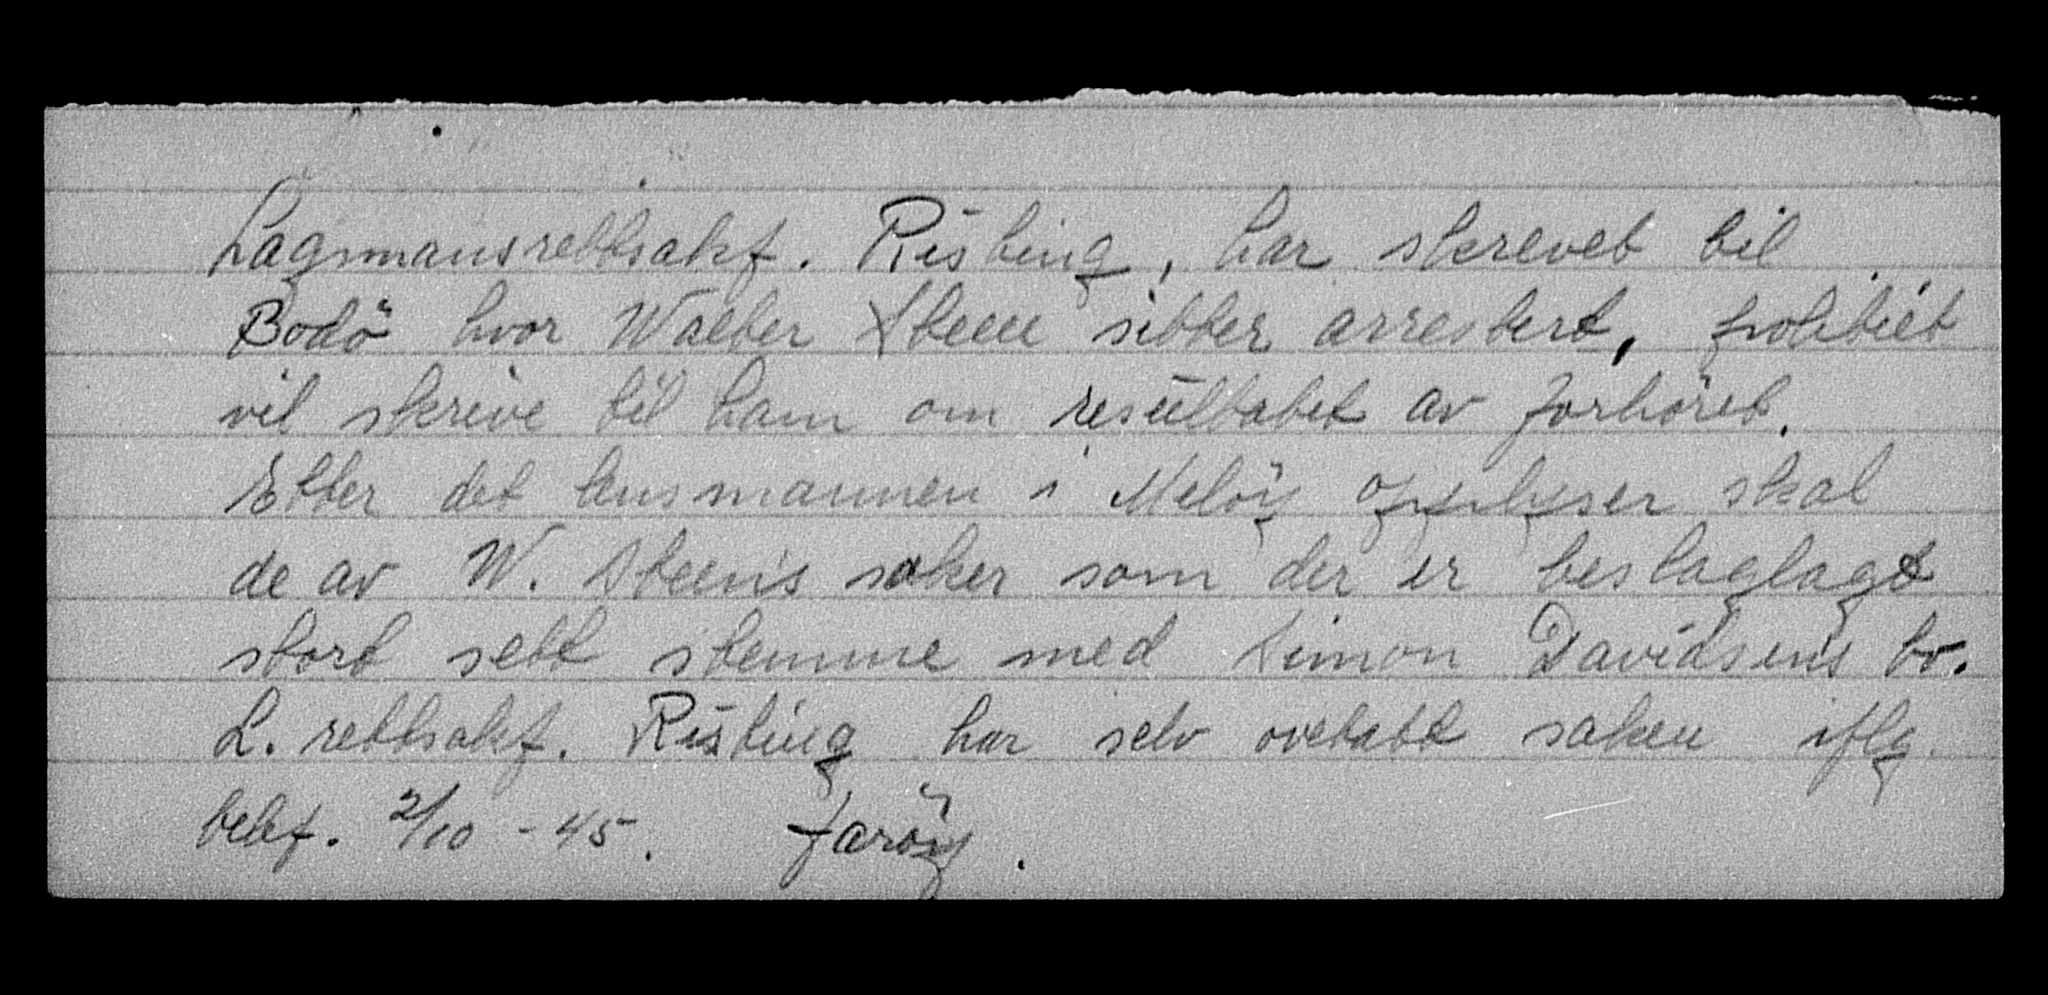 Lagmansrettsakf. Risting, har skrevet til
Bodö hvor Walter Steen sitter arrestert, politiet
vil skrive til ham om resultatet av forhöret.
Etter det lensmannen i Melöy opplyser skal
de av W. Steens saker som der er beslaglagt
stort sett stemme med Simon Davidsens bo.
L. rettsakf. Risting har selv overtatt saken iflg.
telef. 2/10 - 45. Faröy.